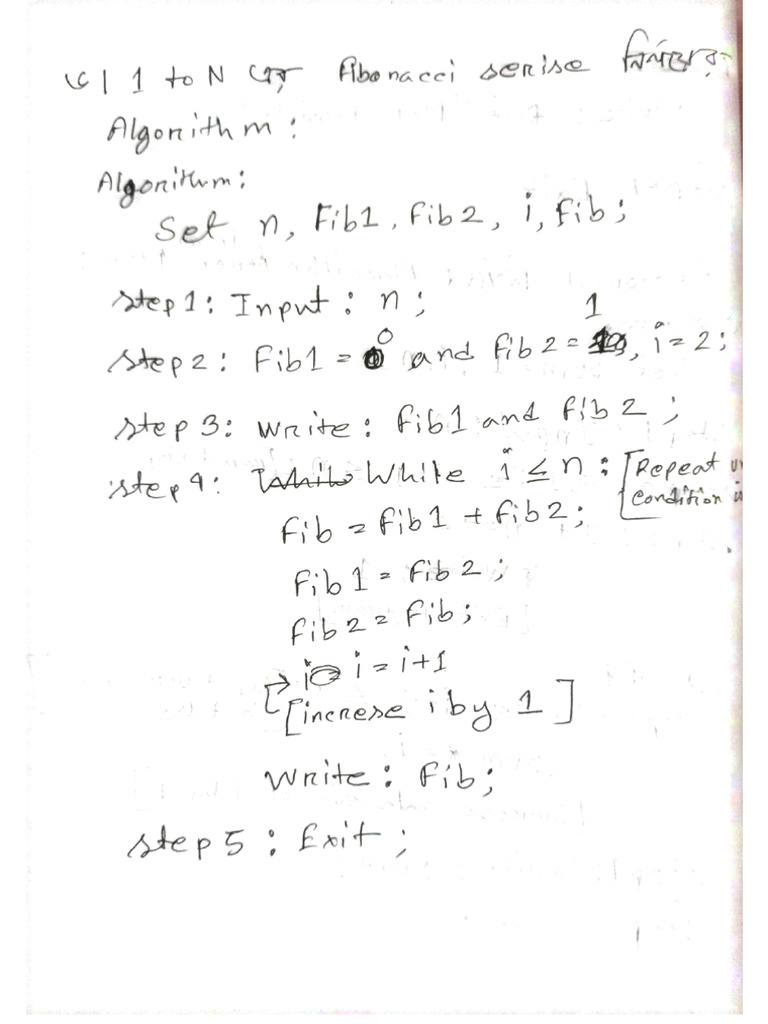 ৩। 1 to N এর Fibonacci serise নির্ণয়ের
Algorithm:
Algorithm:
Set n, Fib1, Fib2, i, fib;
Step1: Input: n;
Step2: Fib1 = 0 and fib2 = 1, i = 2;
Step 3: Write: fib1 and fib2;
Step 4: While i ≤ n: [Repeat
condition
fib = fib1 + fib2;
fib1 = fib2;
fib2 = fib;
→ i = i+1
[increse i by 1]
Write: Fib;
Step5: Exit;